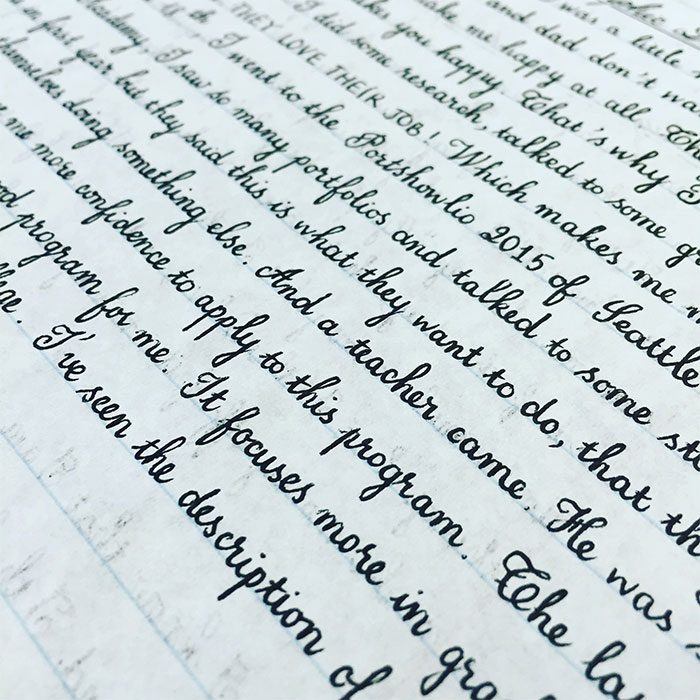 was a little
and dad don't
make me happy at all.
you happy. That's why I
I did some research, talked to some
THEY LOVE THEIR JOB! Which makes me
I went to the Portshowlio 2015 of Seattle
Academy. I saw so many portfolios and talked to some
in first year but they said this is what they want to do, that
themselves doing something else. And a teacher came. He was
me more confidence to apply to this program. The
program for me. It focuses more in
I've seen the description of